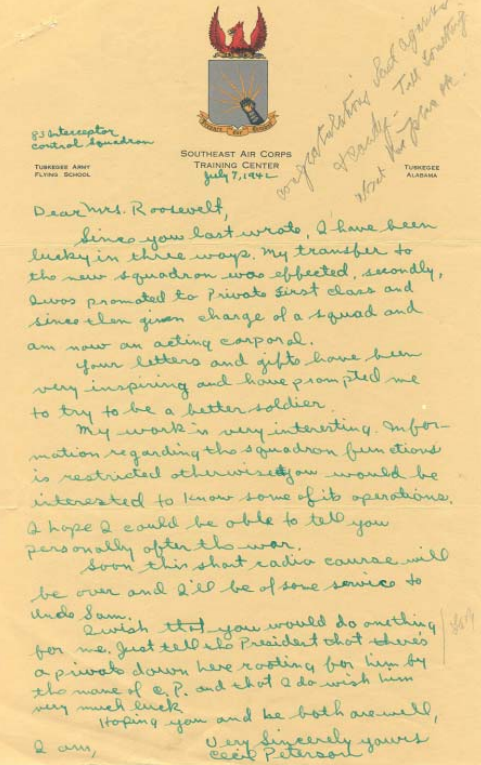 83 Interceptor
control Squadron
SOUTHEAST AIR CORPS
TRAINING CENTER
TUSKEGEE ARMY
FLYING SCHOOL
July 7, 1942
TUSKEGEE
ALABAMA
congratulations
Dear Mrs. Roosevelt,
Since you last wrote, I have been
lucky in three ways. My transfer to
the new squadron was effected, secondly,
I was promoted to Private First class and
since then given charge of a squad and
am now an acting corporal.
Your letters and gifts have been
very inspiring and have prompted me
to try to be a better soldier.
My work is very interesting. Infor-
mation regarding the squadron functions
is restricted otherwise you would be
interested to know some of its operations.
I hope I could be able to tell you
personally after the war.
Soon this short radio course will
be over and I'll be of some service to
Uncle Sam.
I wish that you would do onething
for me. Just tell the President that there's
a private down here rooting for him by
the name of C. P. and that I do wish him
very much luck
Hoping you and he both are well,
I am,
Very Sincerely yours
Cecil Peterson